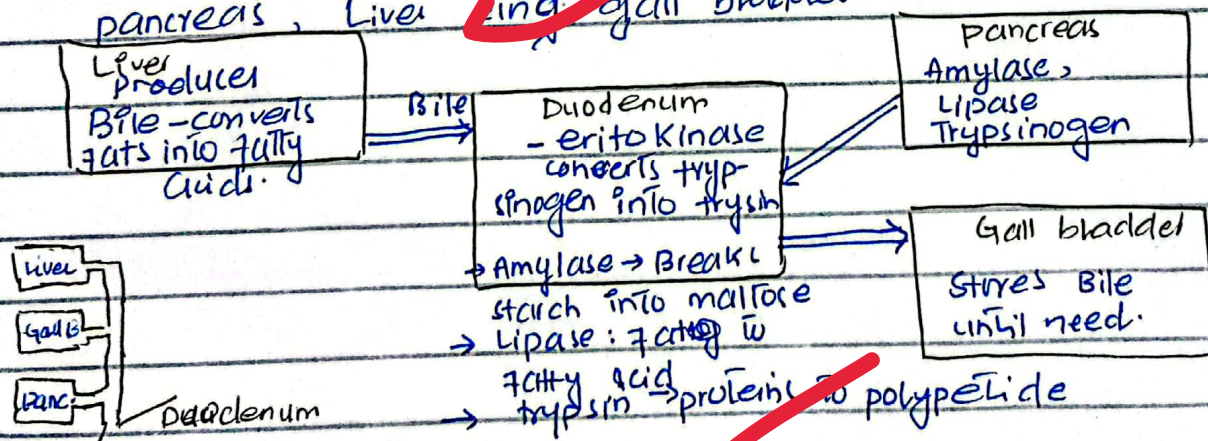 pancreas, Liver and gall bladder
Liver
produces
Bile - converts
fats into fatty
acids.
Bile
Duodenum
- eritokinase
converts tryp-
sinogen into trysin
→ Amylase → Breaks
starch into maltose
→ Lipase : fats to
fatty acid
→ trypsin → proteins to polypetide
pancreas
Amylase,
Lipase
Trypsinogen
Gall bladder
Stores Bile
until need.
Liver
Gall B
Panc
Duodenum